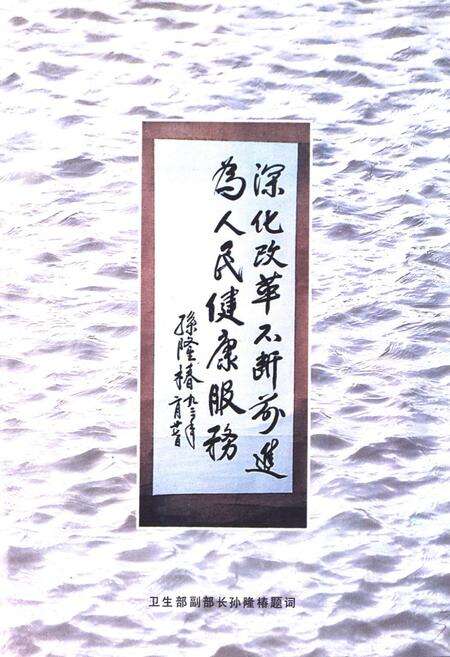 深化改革不断前進
為人民健康服務
孫隆椿九三年
二月廿日
卫生部副部长孙隆椿题词